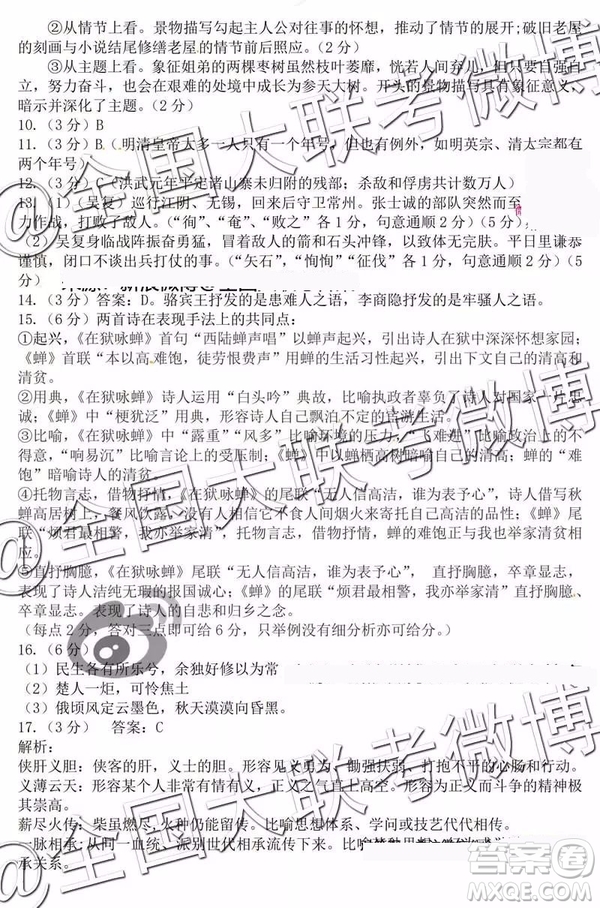 ②从情节上看。景物描写勾起主人公对往事的怀想，推动了情节的展开；破旧老屋
的刻画与小说结尾修缮老屋的情节前后照应。（2 分）
③从主题上看。象征姐弟的两棵枣树虽然枝叶萎靡，恍若人间弃儿，但只要自立自强，
努力奋斗，也会在艰难的处境中成长为参天大树。开头的景物描写具有象征意义，
暗示并深化了主题。（2 分）
10.（3 分）B
11.（3 分）B（明清皇帝大多一人只一个年号，但也有例外，如明英宗、清太宗都有
两个年号）
12.（3 分）C（洪武元年平定诸山寨未归附的残部；杀敌和俘虏共计数万人）
13.（1）（吴复）巡行江阴、无锡，回来后守卫常州。张士诚的部队突然而至
力作战，打败了敌人。（“徇”、“奄”、“败之”各 1 分，句意通顺 2 分）（5 分）
（2）吴复身临战阵振奋勇猛，冒着敌人的箭和石头冲锋，以致遍体创伤。平日里恭
谨慎，闭口不谈出兵打仗的事。（“矢石”、“恂恂”“征伐”各 1 分，句意通顺 2 分）（5
分）
14.（3 分）答案：D。骆宾王抒发的是患难人之语，李商隐抒发的是牢骚人之语。
15.（6 分）两首诗在表现手法上的共同点：
①起兴，《在狱咏蝉》首句“西陆蝉声唱”以蝉声起兴，引出诗人在狱中深深怀想家园；
《蝉》首联“本以高难饱，徒劳恨费声”用蝉的生活习性起兴，引出下文自己的清高和
清贫。
②用典，《在狱咏蝉》诗人运用“白头吟”典故，比喻执政者辜负了诗人对国家一片忠
诚；《蝉》中“梗犹泛”用典，形容诗人自己飘泊不定的宦游生活。
③比喻，《在狱咏蝉》中“露重”“风多”比喻环境的压力，“飞难进”比喻政治上的不
得意，“响易沉”比喻言论上的受压制；《蝉》中以蝉栖高树暗喻自己的清高；蝉的“难
饱”暗喻诗人的清贫。
④托物言志，借物抒情，《在狱咏蝉》的尾联“无人信高洁，谁为表予心”，诗人借写秋
蝉高居树上，餐风饮露，没有人相信它不食人间烟火来寄托自己的高洁情感；《蝉》尾
联“烦君最相警，我亦举家清”，托物言志，借物抒情，表达了自己也与蝉举家清贫相
应。
⑤直抒胸臆，《在狱咏蝉》尾联“无人信高洁，谁为表予心”， 直抒胸臆，卒章显志。
表现了诗人洁纯无瑕的报国诚心；《蝉》尾联的“烦君最相警，我亦举家清”直抒胸臆、
卒章显志。表现了诗人的自悲和归乡之念。
（每点 2 分，答对三点即可给 6 分，只举例而没有细分析亦可给分。）
16.（6 分）
（1）民生各有所乐兮，余独好修以为常
（2）楚人一炬，可怜焦土
（3）俄顷风定云墨色，秋天漠漠向昏黑。
17.（3 分） 答案：C
解析：
侠肝义胆：侠客的肝，义士的胆。形容见义勇为、勘强扶弱、打抱不平的心肠和行动。
义薄云天：形容某个人非常有情有义，正义之气直上高空。形容为正义而斗争的精神极
其崇高。
薪尽火传：柴虽燃尽，火种仍能留传。比喻思想体系、学问或技艺代代相传。
一脉相承：从同一血统、派别世代相承流传下来。比喻
承关系。
@全国大联考微博
@全国大联考微博
答案圈
MXQE.COM